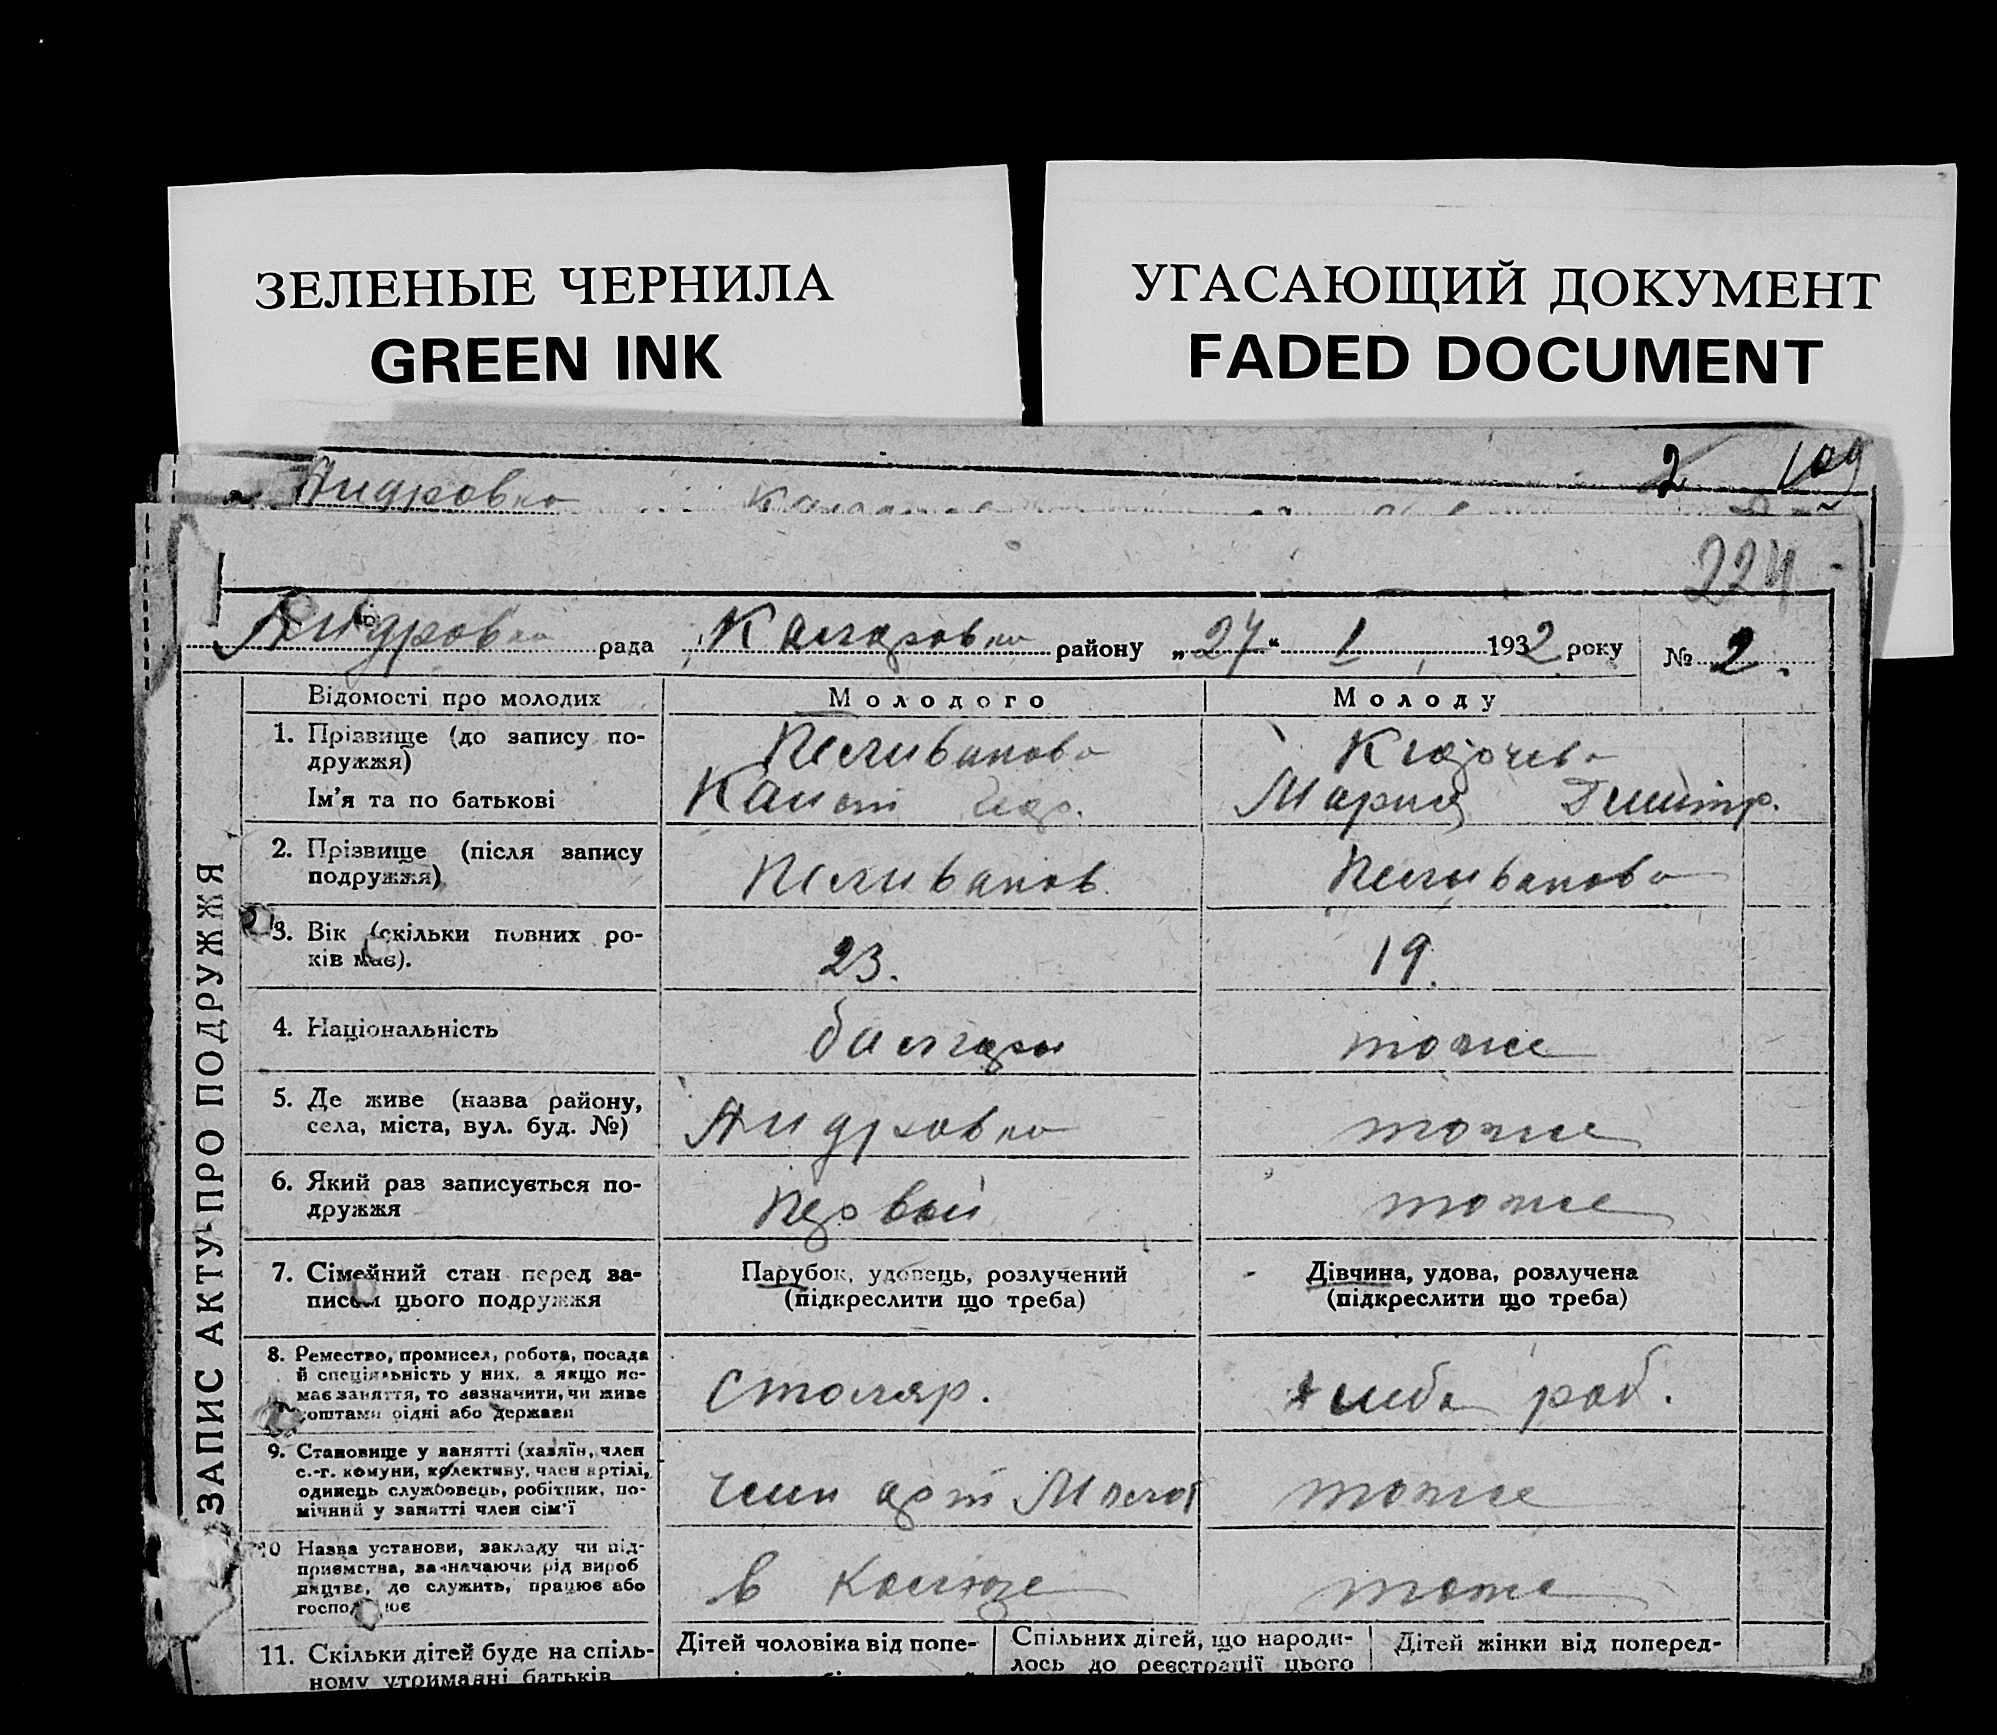 ЗЕЛЕНЫЕ ЧЕРНИЛА
GREEN INK
УГАСАЮЩИЙ ДОКУМЕНТ
FADED DOCUMENT
2 109
Андровка
224
Андровка рада район у „27“ 1 1932 року № 2.
ЗАПИС АКТУ ПРО ПОДРУЖЖЯ
Відомості про молодих Молодого Молоду
1. Прізвище (до запису по-
дружжя)
Пеливанова
Ім'я та по батькові
Мария Дмитр.
2. Прізвище (після запису
подружжя)
Пеливанов Пеливанова
3. Вік (скільки повних ро-
ків має).
23. 19.
4. Національність
болгары тоже
5. Де живе (назва району,
села, міста, вул. буд. №)
Андровка тоже
6. Який раз записується по-
дружжя
Первый тоже
7. Сімейний стан перед за-
писом цього подружжя
Парубок, удовець, розлучений
(підкреслити що треба)
Дівчина, удова, розлучена
(підкреслити що треба)
8. Ремество, промисел, робота, посада
й спеціяльність у них, а якщо не-
має заняття, то зазначити, чи живе
коштами рідні або держави
столяр. раб.
9. Становище у занятті (хазяїн, член
с.-г. комуни, колективу, член артілі,
одинець службовець, робітник, по-
мічний у занятті член сім'ї
член арт тоже
10 Назва установи, закладу чи під-
приємства, зазначаючи рід вироб
ництва, де служить, працює або
господарює
в колхозе тоже
11. Скільки дітей буде на спіль-
ному утриманні батьків
Дітей чоловіка від попе-
Спільних дітей, що народи-
лось до реєстрації цього
Дітей жінки від поперед-